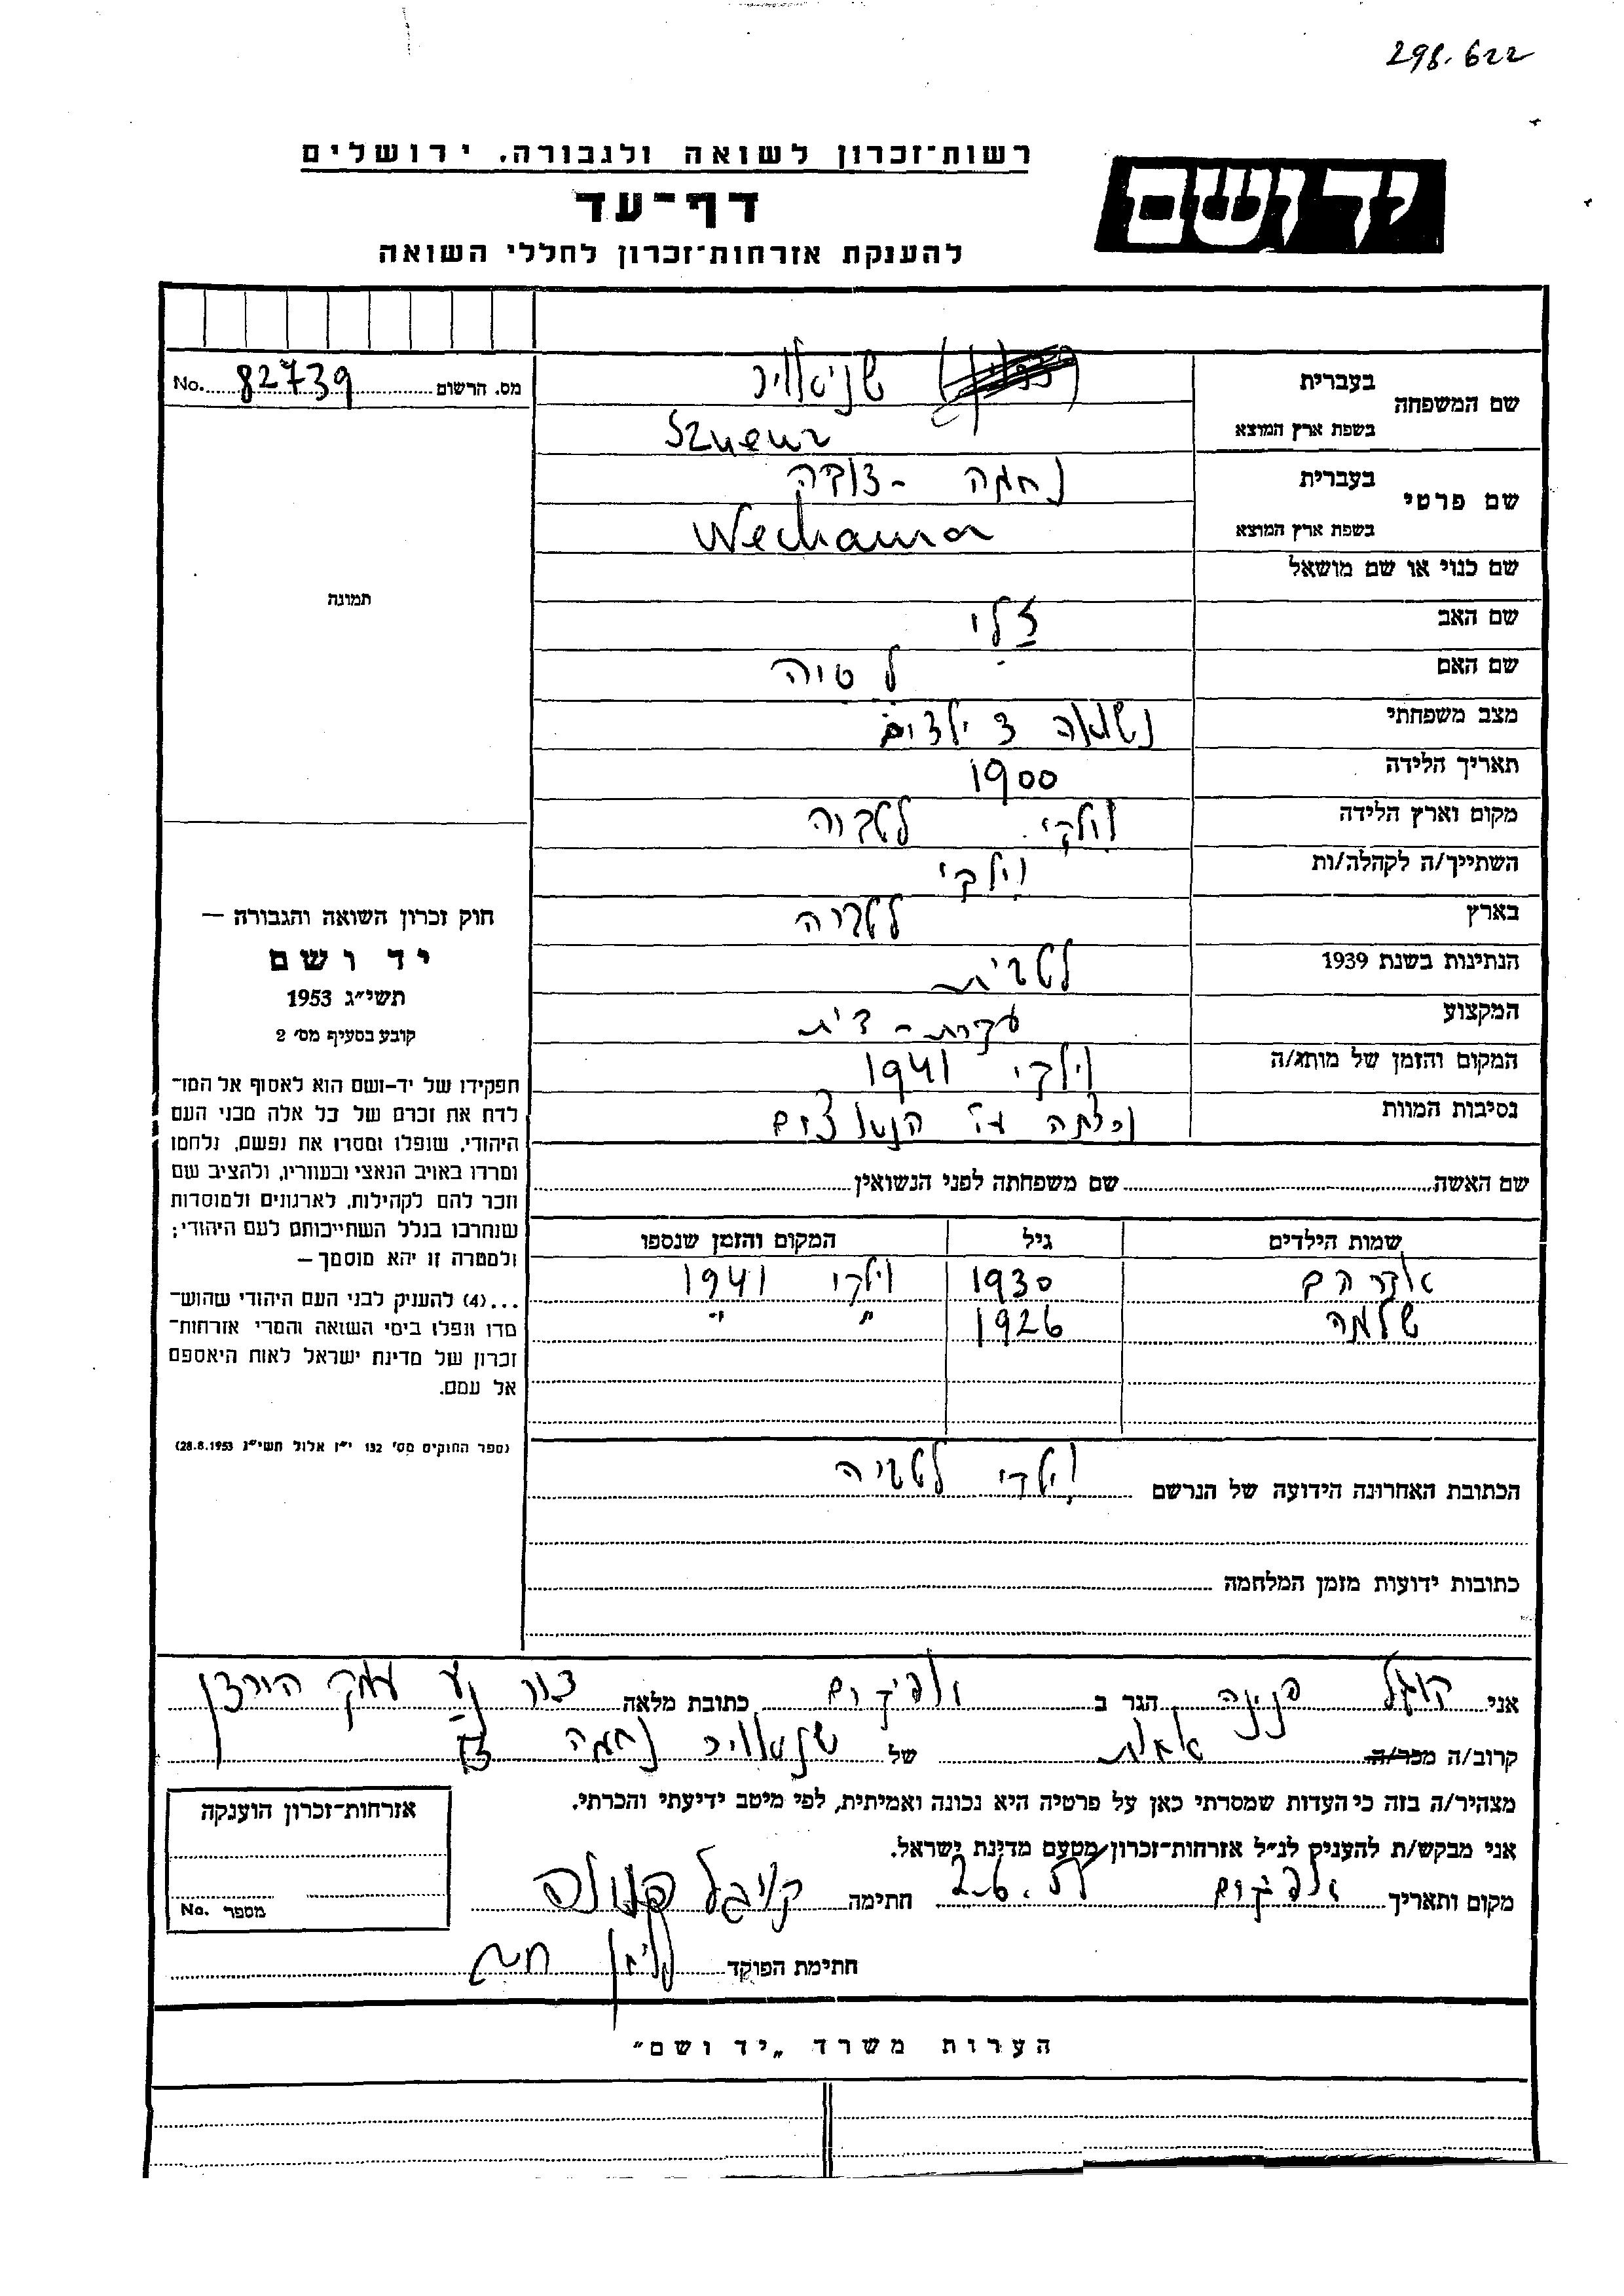 298.622
רשות־זכרון לשואה ולגבורה, ירושלים
יד ושם
דף־עד
להענקת אזרחות־זכרון לחללי השואה
מס. הרשום 82739 No.
שם המשפחה בעברית
בשפת ארץ המוצא
שם פרטי בעברית נחמה -
בשפת ארץ המוצא Nechama
שם כנוי או שם מושאל
שם האב
שם האם
מצב משפחתי נשואה ילדים
תאריך הלידה 1900
מקום וארץ הלידה וילקי לטביה
השתייך/ה לקהלה/ות וילקי
בארץ לטביה
הנתינות בשנת 1939 לטבית
המקצוע עקרת-בית
המקום והזמן של מותו/ה וילקי 1941
נסיבות המוות
שם האשה שם משפחתה לפני הנשואין
שמות הילדים גיל המקום והזמן שנספו
אברהם 1930 וילקי 1941
שלמה 1926 " "
הכתובת האחרונה הידועה של הנרשם וילקי לטביה
כתובות ידועות מזמן המלחמה
תמונה
חוק זכרון השואה והגבורה —
יד ושם
תשי״ג 1953
קובע בסעיף מס׳ 2
תפקידו של יד-ושם הוא לאסוף אל המו־
לדת את זכרם של כל אלה מבני העם
היהודי, שנפלו ומסרו את נפשם, נלחמו
ומרדו באויב הנאצי ובעוזריו, ולהציב שם
וזכר להם לקהילות, לארגונים ולמוסדות
שנחרבו בגלל השתייכותם לעם היהודי;
ולמטרה זו יהא מוסמך —
...(4) להעניק לבני העם היהודי שהוש־
מדו ונפלו בימי השואה והמרי אזרחות־
זכרון של מדינת ישראל לאות היאספם
אל עמם.
(ספר החוקים מס׳ 132 י״ז אלול תשי״ג 28.8.1953)
אני פנינה הגר ב אפיקים כתובת מלאה עמק הירדן
קרוב/ה מכר/ה של נחמה
מצהיר/ה בזה כי העדות שמסרתי כאן על פרטיה היא נכונה ואמיתית, לפי מיטב ידיעתי והכרתי.
אני מבקש/ת להעניק לנ״ל אזרחות־זכרון מטעם מדינת ישראל.
מקום ותאריך אפיקים חתימה
חתימת הפוקד
אזרחות־זכרון הוענקה
מספר No.
הערות משרד „יד ושם״